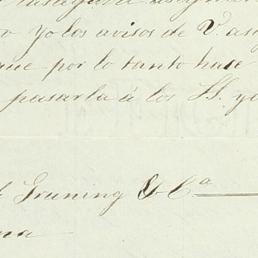 o yo los avisos de V. as
que por lo tanto hase
pasarla á los SS. yo
Gruning & Ca